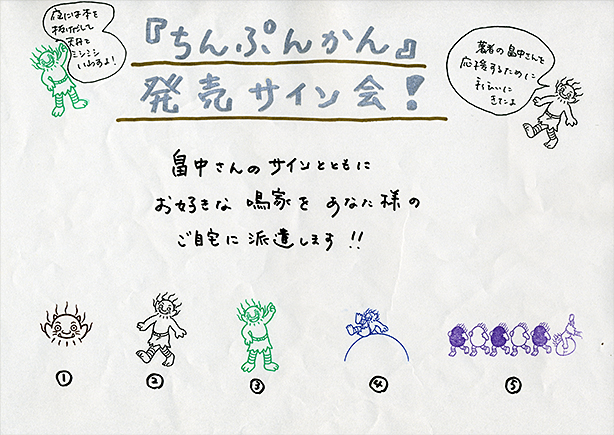 『ちんぷんかん』
発売サイン会!
夜には本を
抜けだして
天井で
ミシミシ
いわすよ!
著者の畠中さんを
応援するために
手伝いに
きてたよ
畠中さんのサインとともに
お好きな 鳴家を あなた様の
ご自宅に 派遣します!!
① ② ③ ④ ⑤